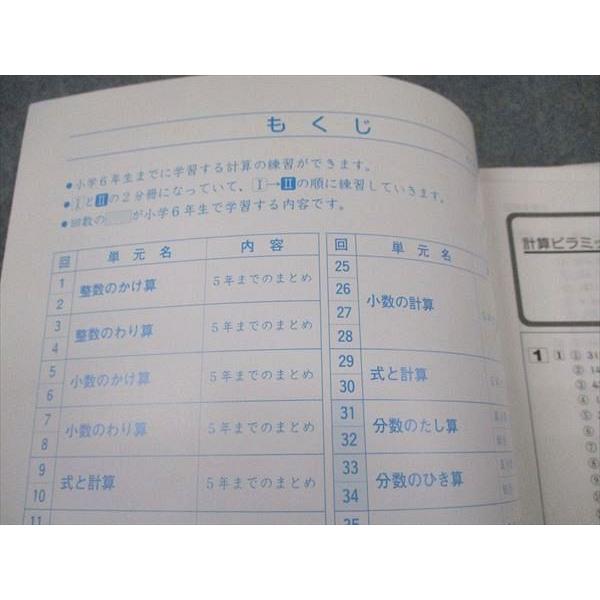 もくじ
●小学6年生までに学習する計算の練習ができます。
●ⅠとⅡの2分冊になっていて、Ⅰ→Ⅱの順に練習していきます。
●回数の が小学6年生で学習する内容です。
回 単元名 内容
1 2 整数のかけ算 5年までのまとめ
3 4 整数のわり算 5年までのまとめ
5 6 小数のかけ算 5年までのまとめ
7 8 小数のわり算 5年までのまとめ
9 10 式と計算 5年までのまとめ
11
回 単元名
25 26 27 28 小数の計算
29 30 式と計算
31 32 分数のたし算
33 34 分数のひき算
35
計算ピラミ
1 1 ①
②
③
④
⑤
⑥
⑦
⑧
⑨
⑩